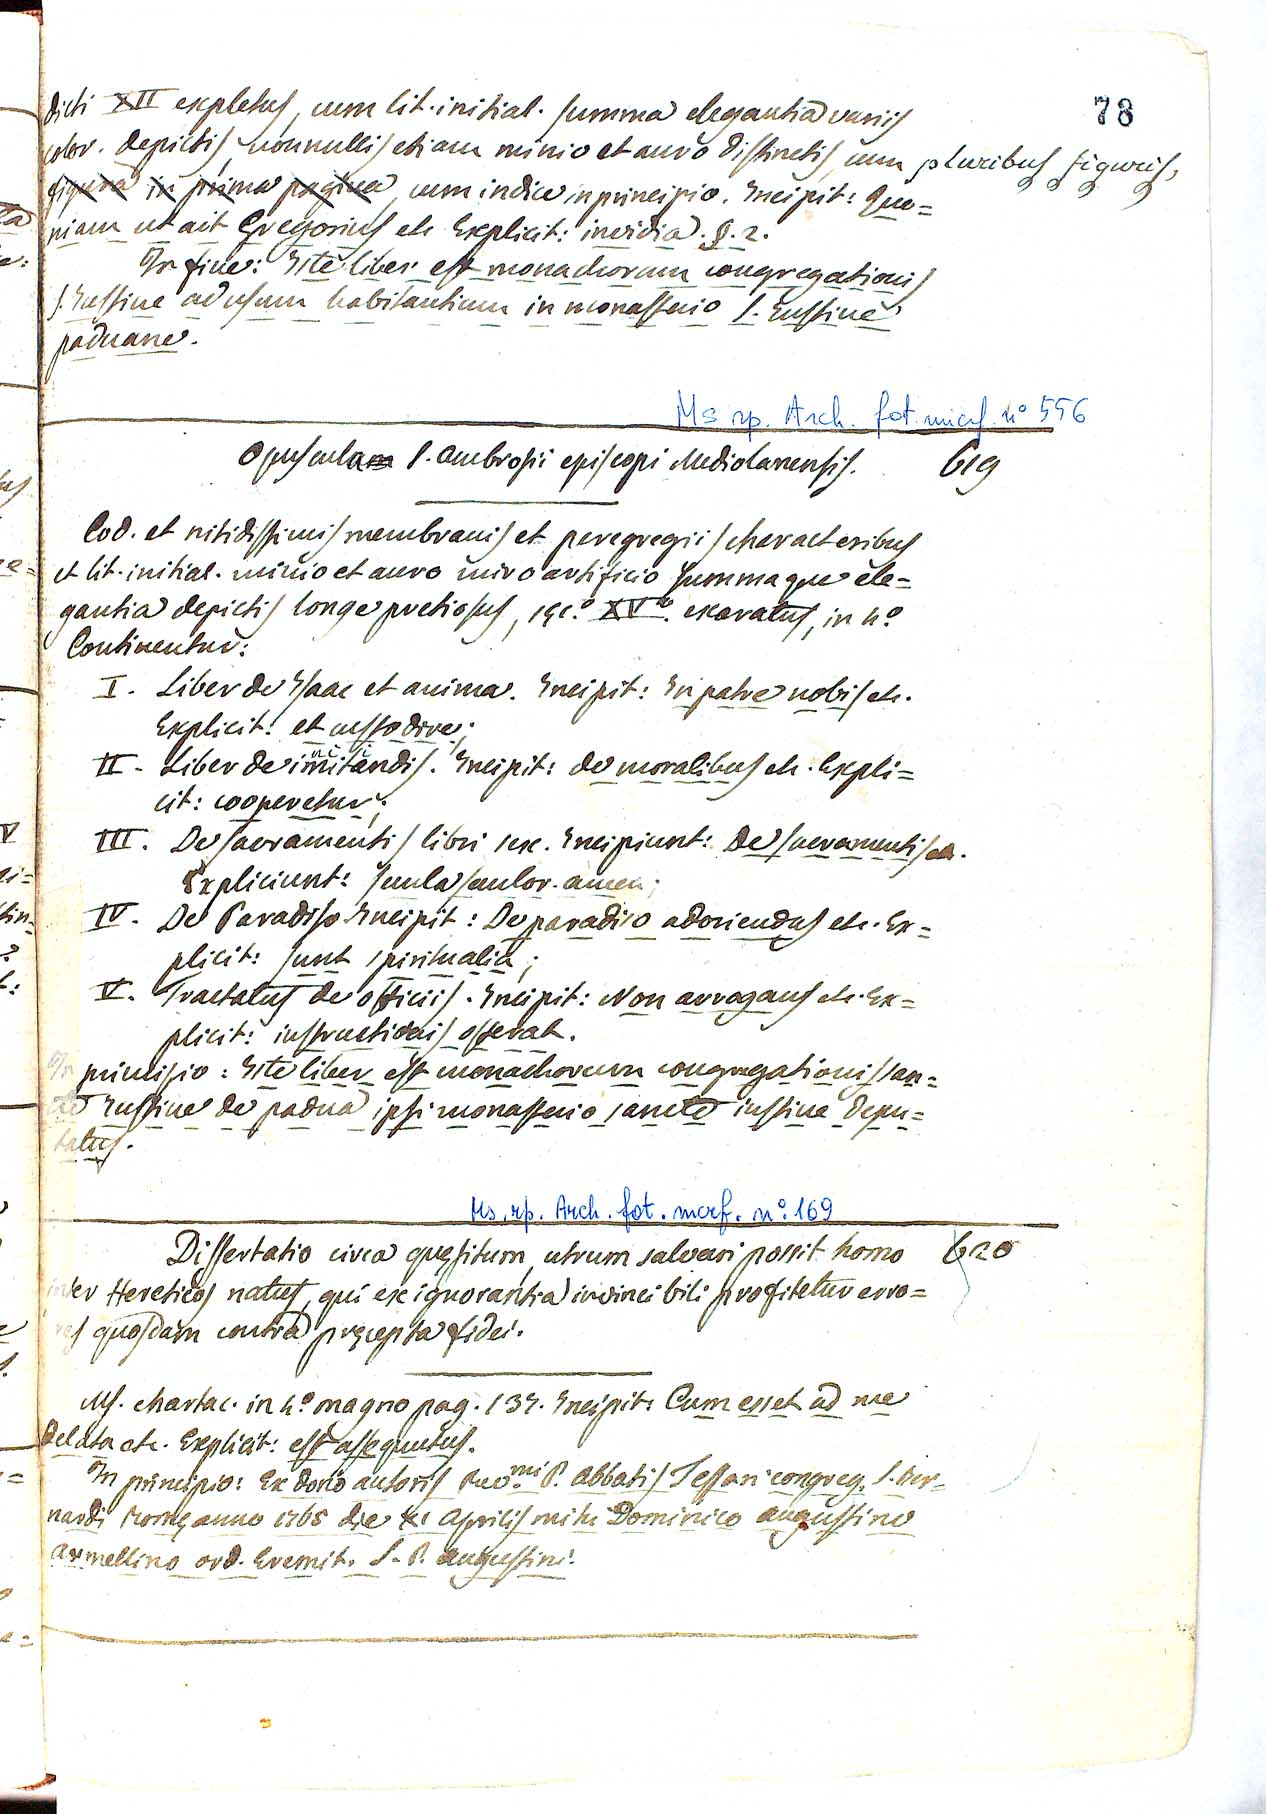 78
dicti XII expletus, cum lit. initial. summa elegantia variis
color. depictis, nonnullis etiam minio et auro distinctis, cum pluribus figuris,
figura in prima pagina, cum indice in principio. Incipit: Quo=
niam ut ait Gregorius etc. Explicit: invidia. §. 2.
In fine: Iste liber est monachorum congregationis
S. Iustine ad usum habitantium in monasterio S. Iustine
paduane.
Ms rp. Arch. fot. micf. n° 556
Opuscula S. Ambrosii episcopi Mediolanensis. 619
Cod. et nitidissimis membranis et peregregiis characteribus
et lit. initial. minio et auro miro artificio summaque ele=
gantia depictis longe pretiosus, sec.° XV.° exaratus, in 4.°
Continentur:
I. Liber de Isaac et anima. Incipit: In patre nobis etc.
Explicit: et custodire;
II. Liber de initiandis. Incipit: de moralibus etc. Expli=
cit: cooperetur;
III. De sacramentis libri sex. Incipiunt: De sacramentis etc.
Expliciunt: secula seculor. amen;
IV. De Paradiso Incipit: De paradiso adoriendus etc. Ex=
plicit: sunt spiritualia;
V. Tractatus de officiis. Incipit: Non arrogans etc. Ex=
plicit: instructionis offerat.
In principio: Iste liber est monachorum congregationis san=
cte Iustine de padua ipsi monasterio sancte iustine depu=
tatus.
Ms. rp. Arch. fot. mcrf. n° 169
Dissertatio circa quęsitum, utrum salvari possit homo 620
inter Hereticos natus, qui ex ignorantia invincibili profitetur erro=
res quosdam contra pręcepta fidei.
Ms. chartac. in 4.° magno pag. 137. Incipit: Cum esset ad me
delata etc. Explicit: est assequutus.
In principio: Ex dono autoris Rev.mi P. Abbatis Tessari congreg. S. Ber=
nardi Romę anno 1765 die XI Aprilis mihi Dominico augustino
armellino ord. Eremit. S. P. Augustini.